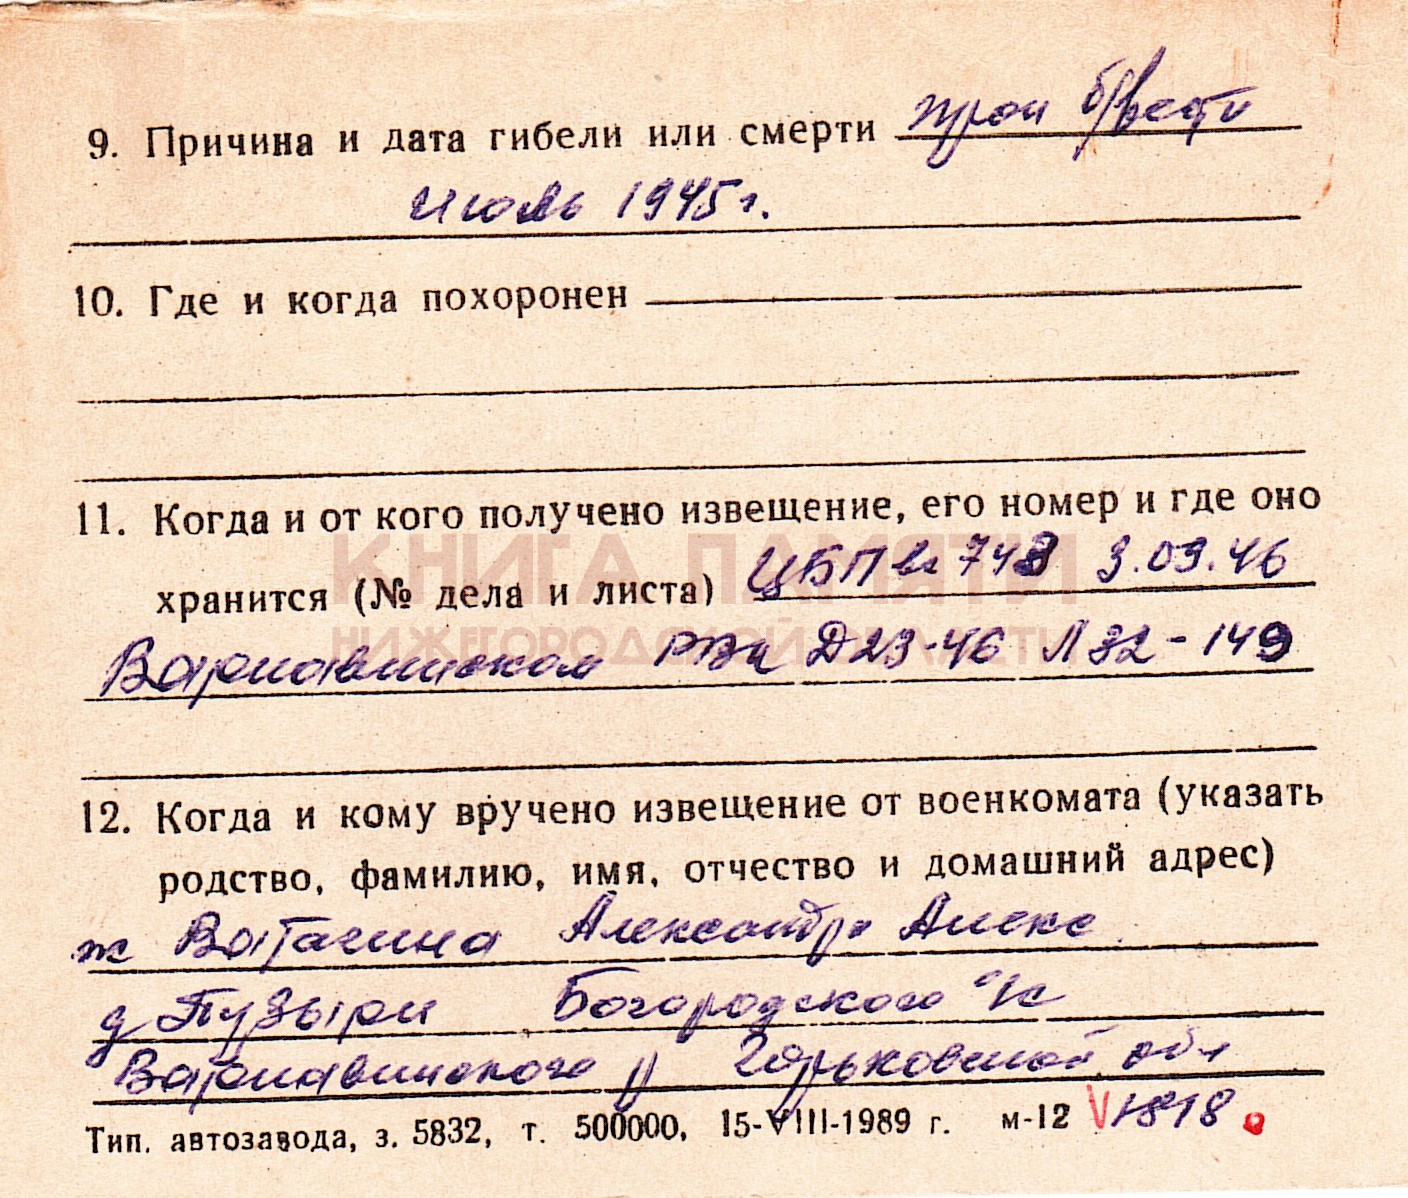 9. Причина и дата гибели или смерти проп б/вести
июль 1945 г.
10. Где и когда похоронен
11. Когда и от кого получено извещение, его номер и где оно
КНИГА ПАМЯТИ
хранится (№ дела и листа) ЦБП вх 748 9.09.46
НИЖЕГОРОДСКОЙ ОБЛАСТИ
Варнавинском РВК Д23-46 Л 32-149
12. Когда и кому вручено извещение от военкомата (указать
родство, фамилию, имя, отчество и домашний адрес)
ж Ватагина Александра Алекс
д Пузыри Богородского с/с
Варнавинского р Горьковской обл
Тип. автозавода, з. 5832, т. 500000, 15-VIII-1989 г. м-12 V 1818.